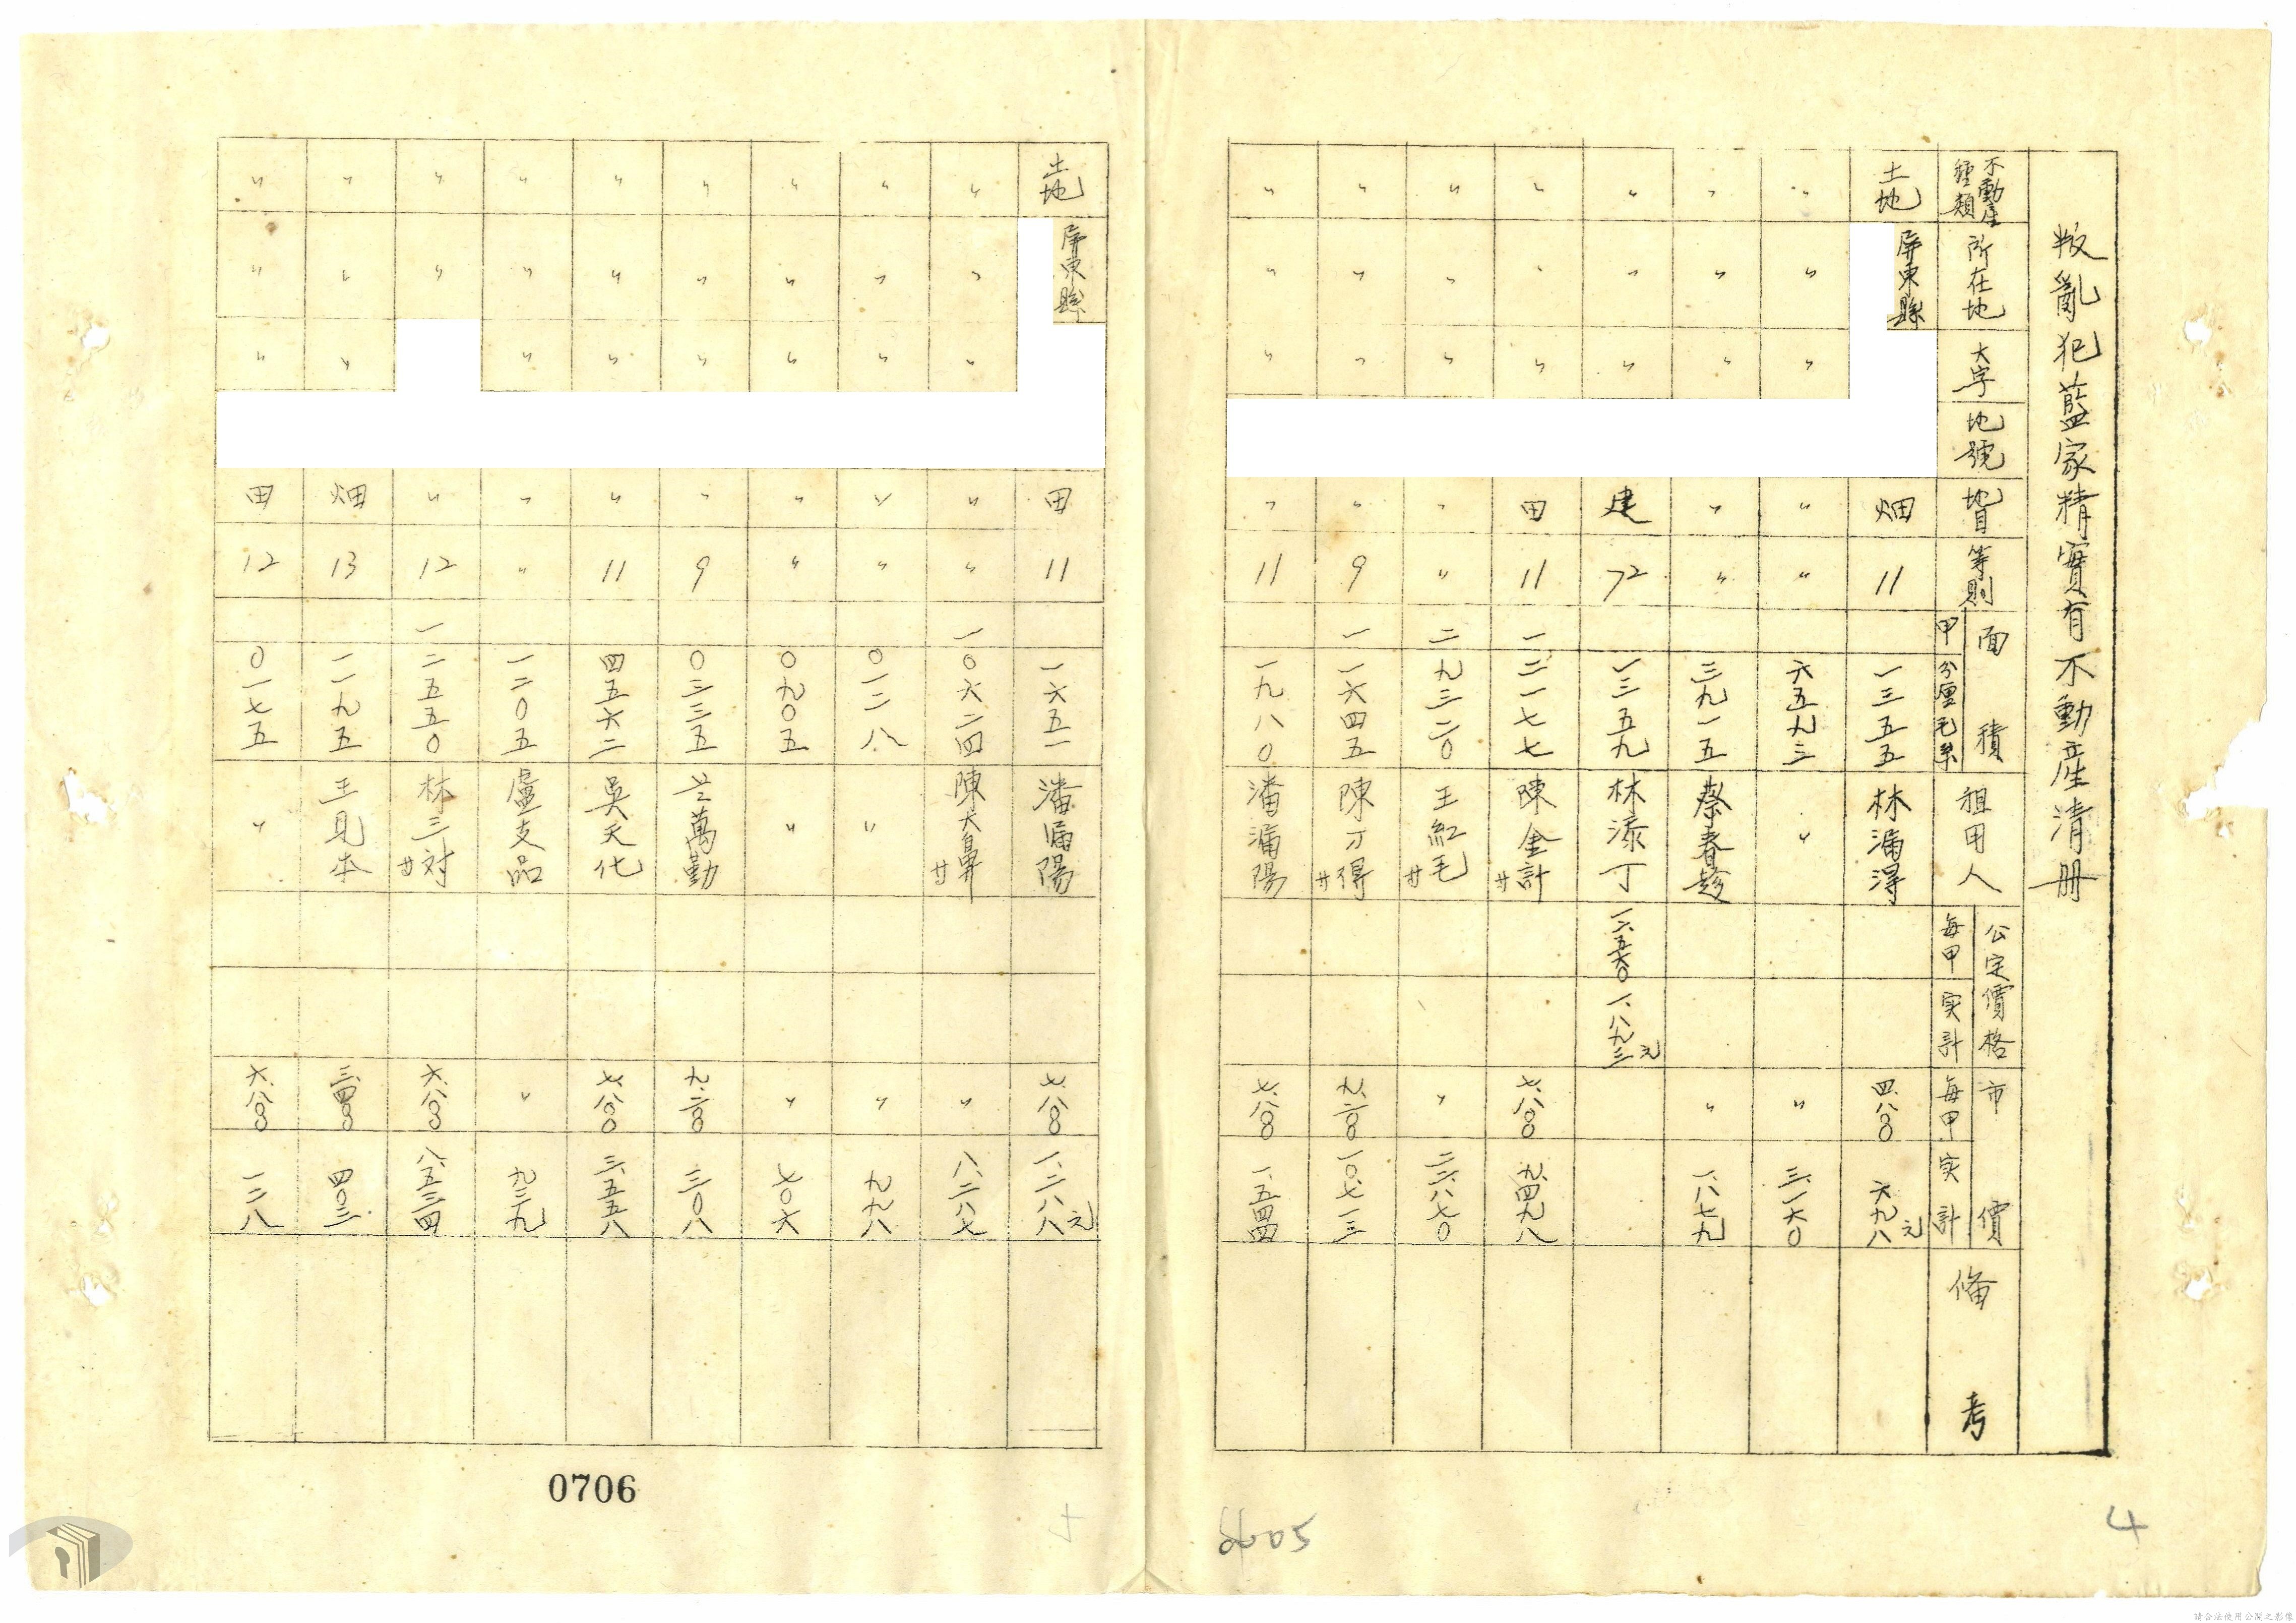 叛亂犯藍家精實有不動產清册
不動產種類 所在地 大字 地號 地目 等則 面積 甲 分厘毛糸 租用人 公定價格 每甲 実計 市價 每甲 実計 備考
土地 屏東縣 畑 11 一三五五 林漏得 四.八〇〇 六九八元
〃 〃 〃 〃 〃 六五九三 〃 〃 三.一六〇
〃 〃 〃 〃 〃 三九一五 蔡春趁 〃 一.八七九
〃 〃 〃 建 72 一三五九 林漆丁 一.八九三元
〃 〃 〃 田 11 一 二一七七 陳金計 廿 七.八〇〇 九.四九八
〃 〃 〃 〃 〃 二 九三二〇 王紅毛 廿 〃 二二.八七〇
〃 〃 〃 〃 9 一 一六四五 陳刀得 廿 九.二〇〇 一〇.七一三
〃 〃 〃 〃 11 一九八〇 潘漏陽 七.八〇〇 一.五四四
4
土地 屏東縣 田 11 一六五一 潘漏陽 七.八〇〇 一.二八八元
〃 〃 〃 〃 〃 一 〇六二四 陳大鼻 廿 〃 八.二八七
〃 〃 〃 〃 〃 〇一二八 〃 〃 九九八
〃 〃 〃 〃 〃 〇九〇五 〃 〃 七〇六
〃 〃 〃 〃 9 〇三三五 萬勤 九.二〇〇 三〇八
〃 〃 〃 〃 11 四五六二 吳天化 七.八〇〇 三.五五八
〃 〃 〃 〃 〃 一二〇五 盧支品 〃 九三九
〃 〃 〃 12 一 二五五〇 林三対 廿 六.八〇〇 八.五三四
〃 〃 〃 畑 13 一一九五 王見本 三.四〇〇 四〇三
〃 〃 〃 田 12 〇一七五 〃 六.八〇〇 一二八
0706
請合法使用公開之影像